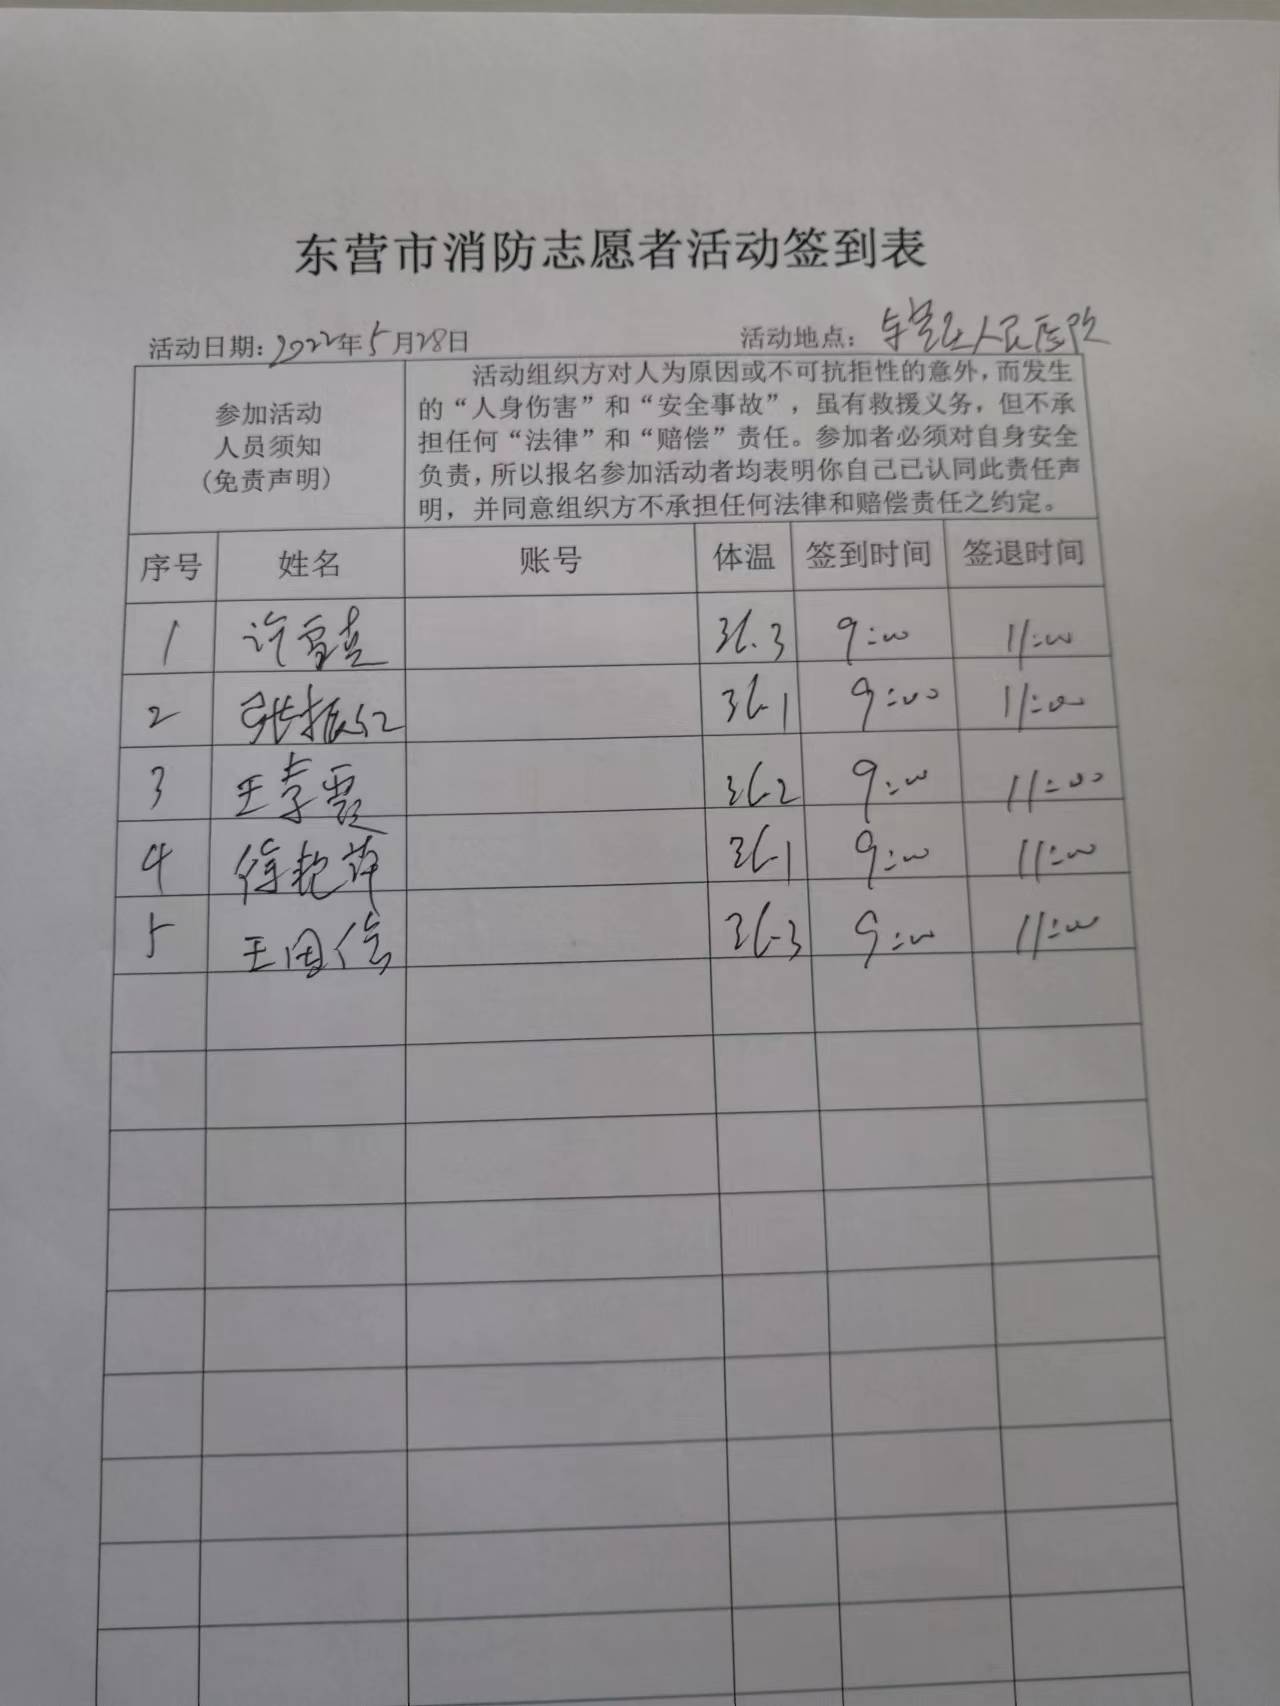 东营市消防志愿者活动签到表
活动日期:2022年5月28日 活动地点:东营区人民医院
参加活动
人员须知
(免责声明)
活动组织方对人为原因或不可抗拒性的意外,而发生
的“人身伤害”和“安全事故”,虽有救援义务,但不承
担任何“法律”和“赔偿”责任。参加者必须对自身安全
负责,所以报名参加活动者均表明你自己已认同此责任声
明,并同意组织方不承担任何法律和赔偿责任之约定。
序号 姓名 账号 体温 签到时间 签退时间
1 许 36.3 9:00 11:00
2 张振红 36.1 9:00 11:00
3 王李霞 36.2 9:00 11:00
4 徐艳萍 36.1 9:00 11:00
5 王国信 36.3 9:00 11:00